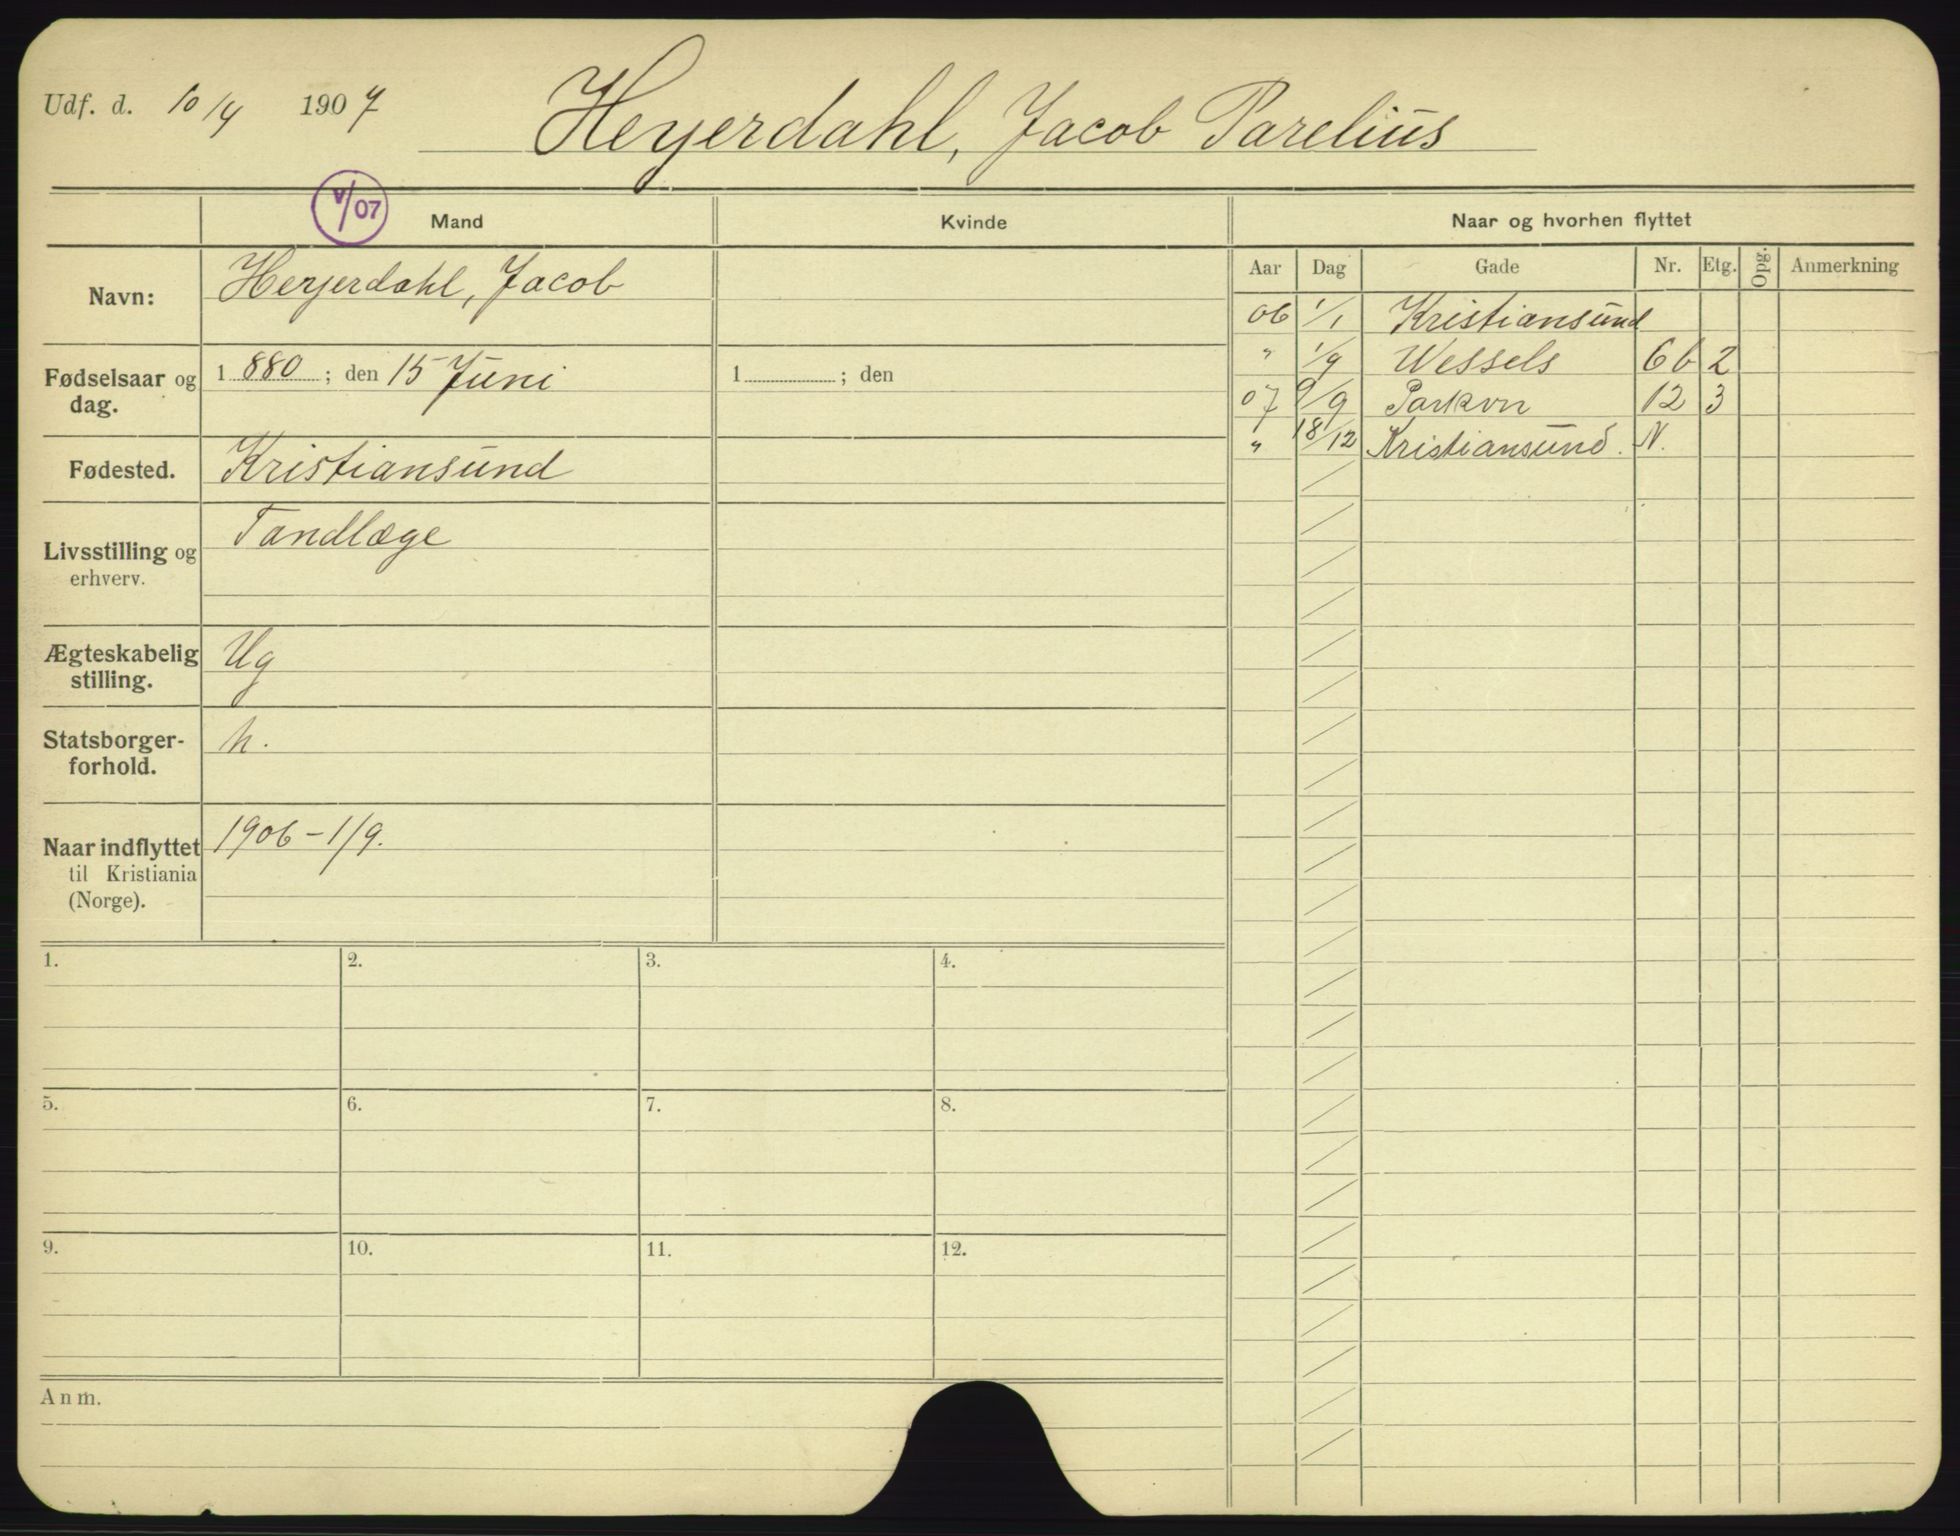 Udf. d. 10/4 1907 Heyerdahl, Jacob Parelius
V/07
Mand Kvinde Naar og hvorhen flyttet
Navn: Heyerdahl, Jacob
Fødselsaar og dag. 1880; den 15 Juni 1 ; den
Fødested. Kristiansund
Livsstilling og erhverv. Tandlæge
Ægteskabelig stilling. Ug
Statsborgerforhold. n.
Naar indflyttet til Kristiania (Norge). 1906 - 1/9.
Aar Dag Gade Nr. Etg. Opg. Anmerkning
06 1/1 Kristiansund
" 1/9 Wessels 6b 2
07 9/9 Parkvn 12 3
" 18/12 Kristiansund. N.
1. 2. 3. 4.
5. 6. 7. 8.
9. 10. 11. 12.
Anm.